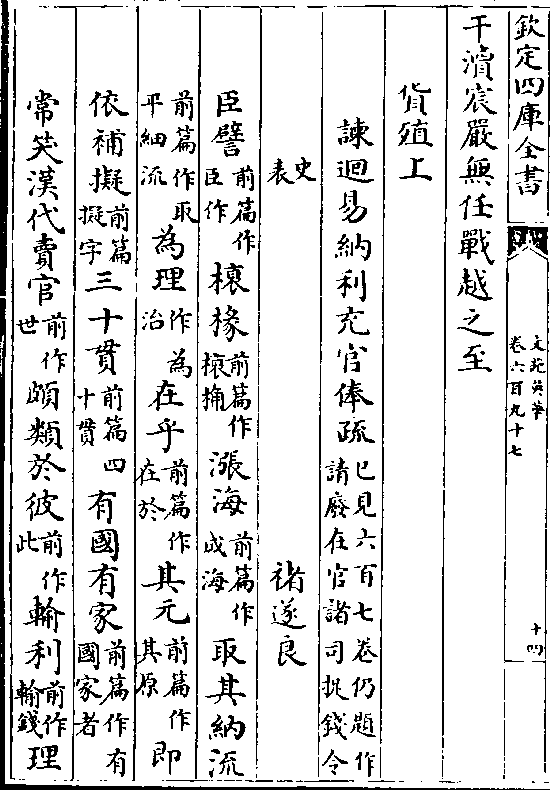 欽定四庫全書
文苑英華
卷六百九十七
十四
干瀆宸嚴無任戰越之至
貨殖上
諫迴易納利充官俸疏已見六百七卷仍題作請廢在官諸司捉錢令史表
褚遂良
臣譬前篇作臣作榱椽前篇作榱桷漲海前篇作成海取其納流前篇作取平細流為理作為治在乎前篇作在於其元前篇作其原即
依補擬前篇擬字三十貫前篇四十貫有國有家前篇作有國家者
常笑漢代賣官前作世頗類於彼前作此輸利前作輸錢理